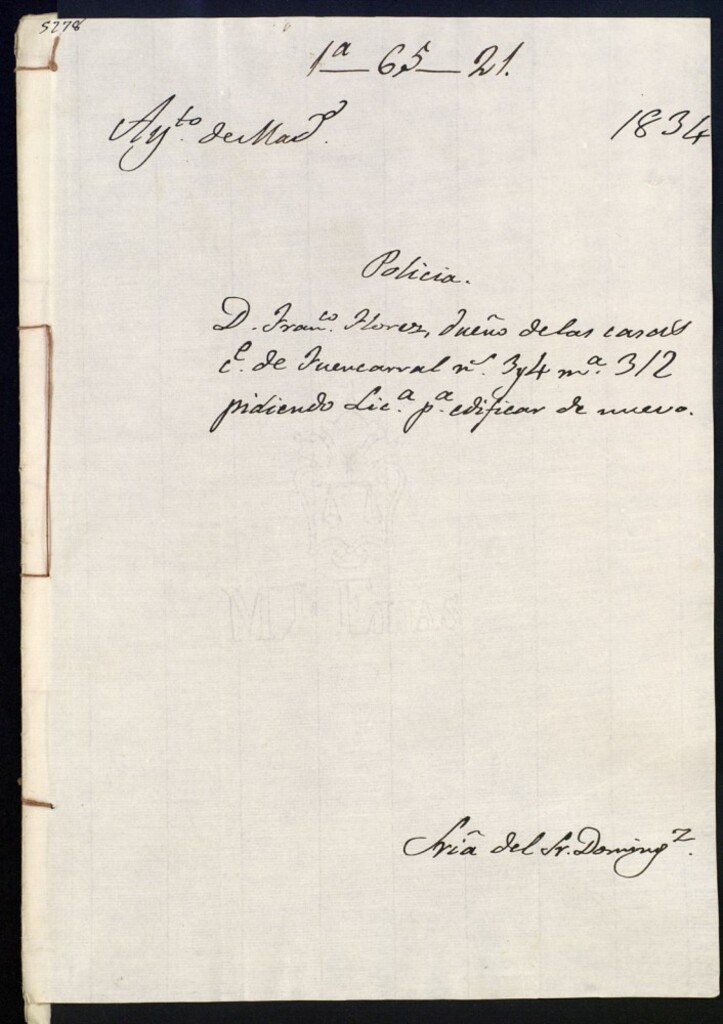 5278
1ª — 65 — 21.
Ayto. de Madd.
1834
Policia.
D. Franco. Florez, dueño de las casas
c.e de Fuencarral n.s 3 y 4 m.ª 312
pidiendo Lic.ª p.ª edificar de nuevo.
Sriã del Sr. Domingz.